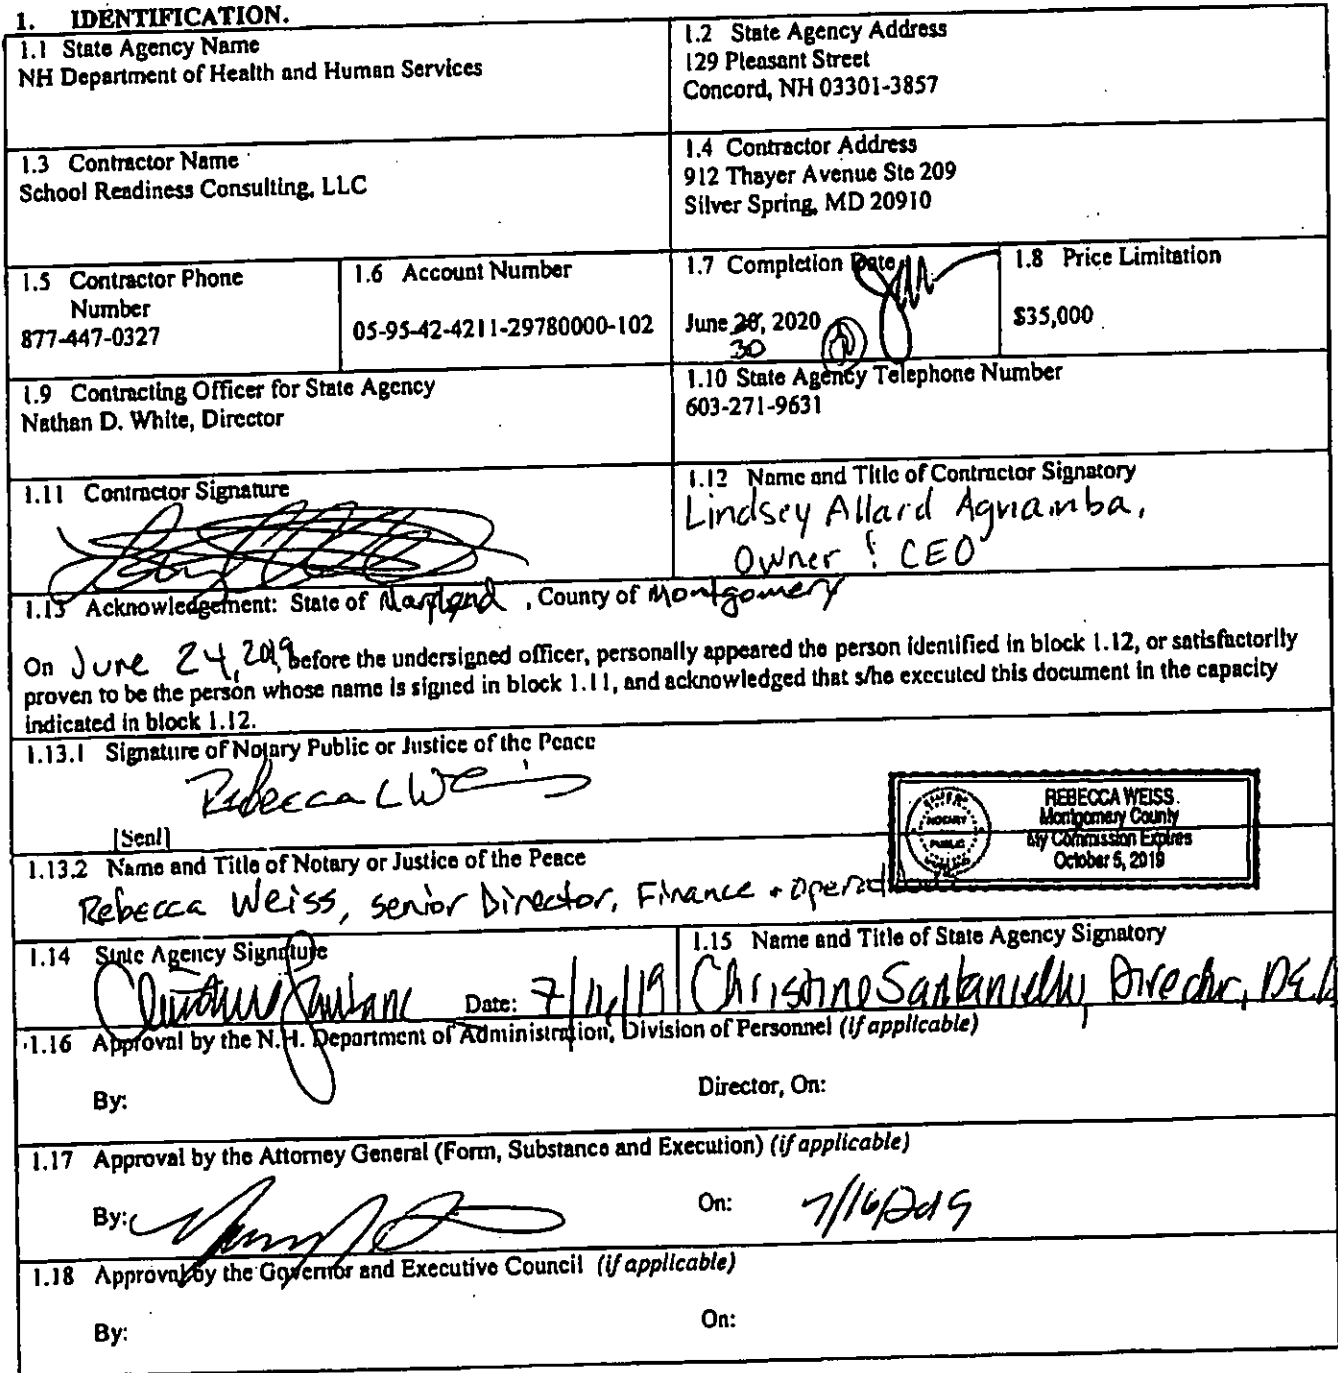 1. IDENTIFICATION.
1.1 State Agency Name
NH Department of Health and Human Services
1.2 State Agency Address
129 Pleasant Street
Concord, NH 03301-3857
1.3 Contractor Name
School Readiness Consulting, LLC
1.4 Contractor Address
912 Thayer Avenue Ste 209
Silver Spring, MD 20910
1.5 Contractor Phone
Number
877-447-0327
1.6 Account Number
05-95-42-4211-29780000-102
1.7 Completion Date
June 20, 2020
30
1.8 Price Limitation
$35,000
1.9 Contracting Officer for State Agency
Nathan D. White, Director
1.10 State Agency Telephone Number
603-271-9631
1.11 Contractor Signature
1.12 Name and Title of Contractor Signatory
Lindsey Allard Agnamba,
Owner & CEO
1.13 Acknowledgement: State of Maryland , County of Montgomery
On June 24, 2019 before the undersigned officer, personally appeared the person identified in block 1.12, or satisfactorily
proven to be the person whose name is signed in block 1.11, and acknowledged that s/he executed this document in the capacity
indicated in block 1.12.
1.13.1 Signature of Notary Public or Justice of the Peace
Rebecca C Weiss
[Seal]
REBECCA WEISS
Montgomery County
My Commission Expires
October 5, 2019
NOTARY
PUBLIC
1.13.2 Name and Title of Notary or Justice of the Peace
Rebecca Weiss, Senior Director, Finance + Operations
1.14 State Agency Signature
Date:
1.15 Name and Title of State Agency Signatory
Christine Santaniello, Director,
1.16 Approval by the N.H. Department of Administration, Division of Personnel (if applicable)
By:
Director, On:
1.17 Approval by the Attorney General (Form, Substance and Execution) (if applicable)
By:
On: 7/16/2019
1.18 Approval by the Governor and Executive Council (if applicable)
By:
On: